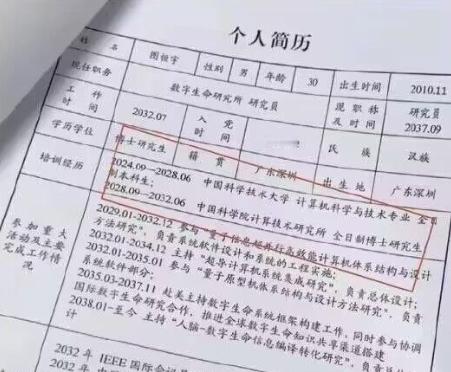 个人简历
姓名 图恒宇 性别 男 年龄 30 出生时间 2010.11
现任职务 数字生命研究所 研究员 现职称及时间 研究员 2037.09
工作时间 2032.07 入党时间 民族 汉族
学历学位 博士研究生 籍贯 广东深圳 出生地 广东深圳
培训经历 2024.09—2028.06 中国科学技术大学 计算机科学与技术专业 全日
制本科生;
2028.09—2032.06 中国科学院计算技术研究所 全日制博士研究生
参加重大活动及主要工作完成情况
2029.01-2032.12 参与“量子信息超并行高效能计算机体系结构与设计
方法研究”,负责系统软件设计和系统的工程实施;
2032.01-2034.12 主持“超导计算机系统集成研究”,负责总体设计;
2032.01-2035.01 参与“量子原型机体系结构与设计方法研究”,负责
系统软件部分;
2035.03-2037.11 赴美主持数字生命系统框架构建工作,同时参与协调
国际数字生命研究合作,推进全球数字生命知识共享渠道搭建
2038.01-至今 主持“人脑-数字生命信息编译转化研究”,负责总体
2032 年 IEEE 国际会议
2032 年